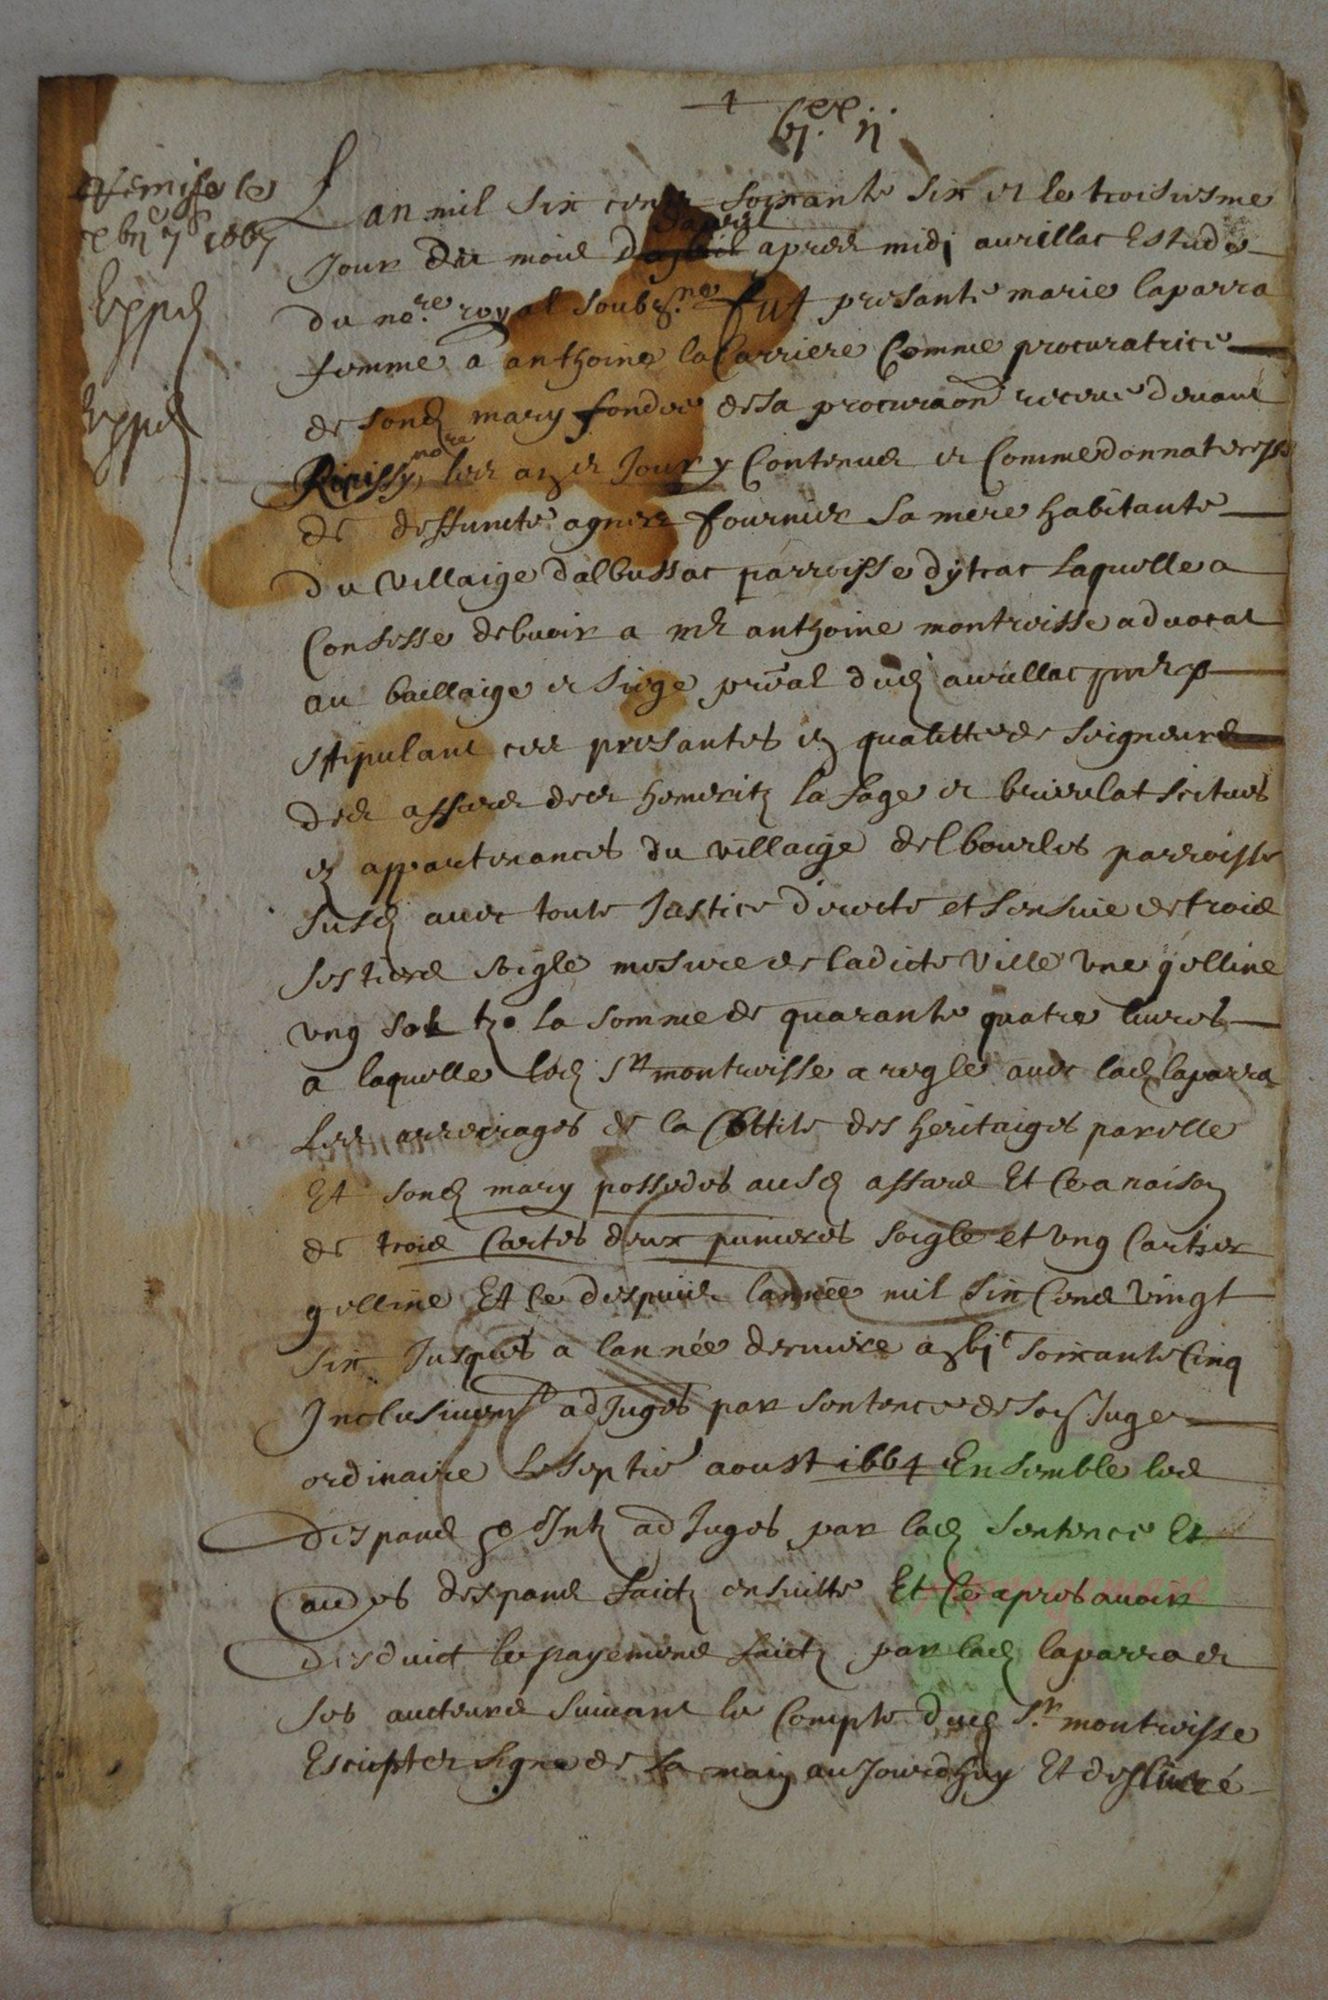 Lan mil six cens soixante six et le troisiesme
davril
Jour du mois apres midy aurillac Estude
du no.re royal soubz.ne fut presante marie laparra
femme a anthoine laCarriere Comme procuratrice
de sond mary fondee de sa procuraon receue devant
nore les an et Jour y Contenus et Comme donnateresse
de deffuncte agnes fournier sa mere habitante
du villaige dalbussac parroisse dytrac Laquelle a
Confesse debvoir a Mr anthoine montroisse advocat
au baillaige et siege pñal dud aurillac
stipulant ces presantes en qualitte de seigneur
des affars des hemeritz la fage et scitues
en appartenances du villaige delbourles parroisse
susd avec toute Justice directe et censive de troie
sestiers seigle mesure de ladicte ville une gelline
ung sol tz la somme de quarante quatre livres
a laquelle led Sr montroisse a regle avec lad laparra
Les arreirages de la Cottite des heritaiges par elle
Et sond mary possedes ausd affars Et Ce a raison
de trois Cartes deux punieres seigle et ung Cartier
gelline Et Ce despuis lannee mil six Cens vingt
six Jusques a lannée derniere soixante Cinq
Inclusivemt adjuges par sentence de Juge
ordinaire Le septie aoust 1664 Ensemble les
despans adjuges par lad sentence Et
despans faictz ensuitte Et Ce apres avoir
desduict les payemens faictz par lad laparra et
ses auteurs suivant le Compte dud Sr. montroisse
Escript et signe de sa main aujourdhuy Et deslivré